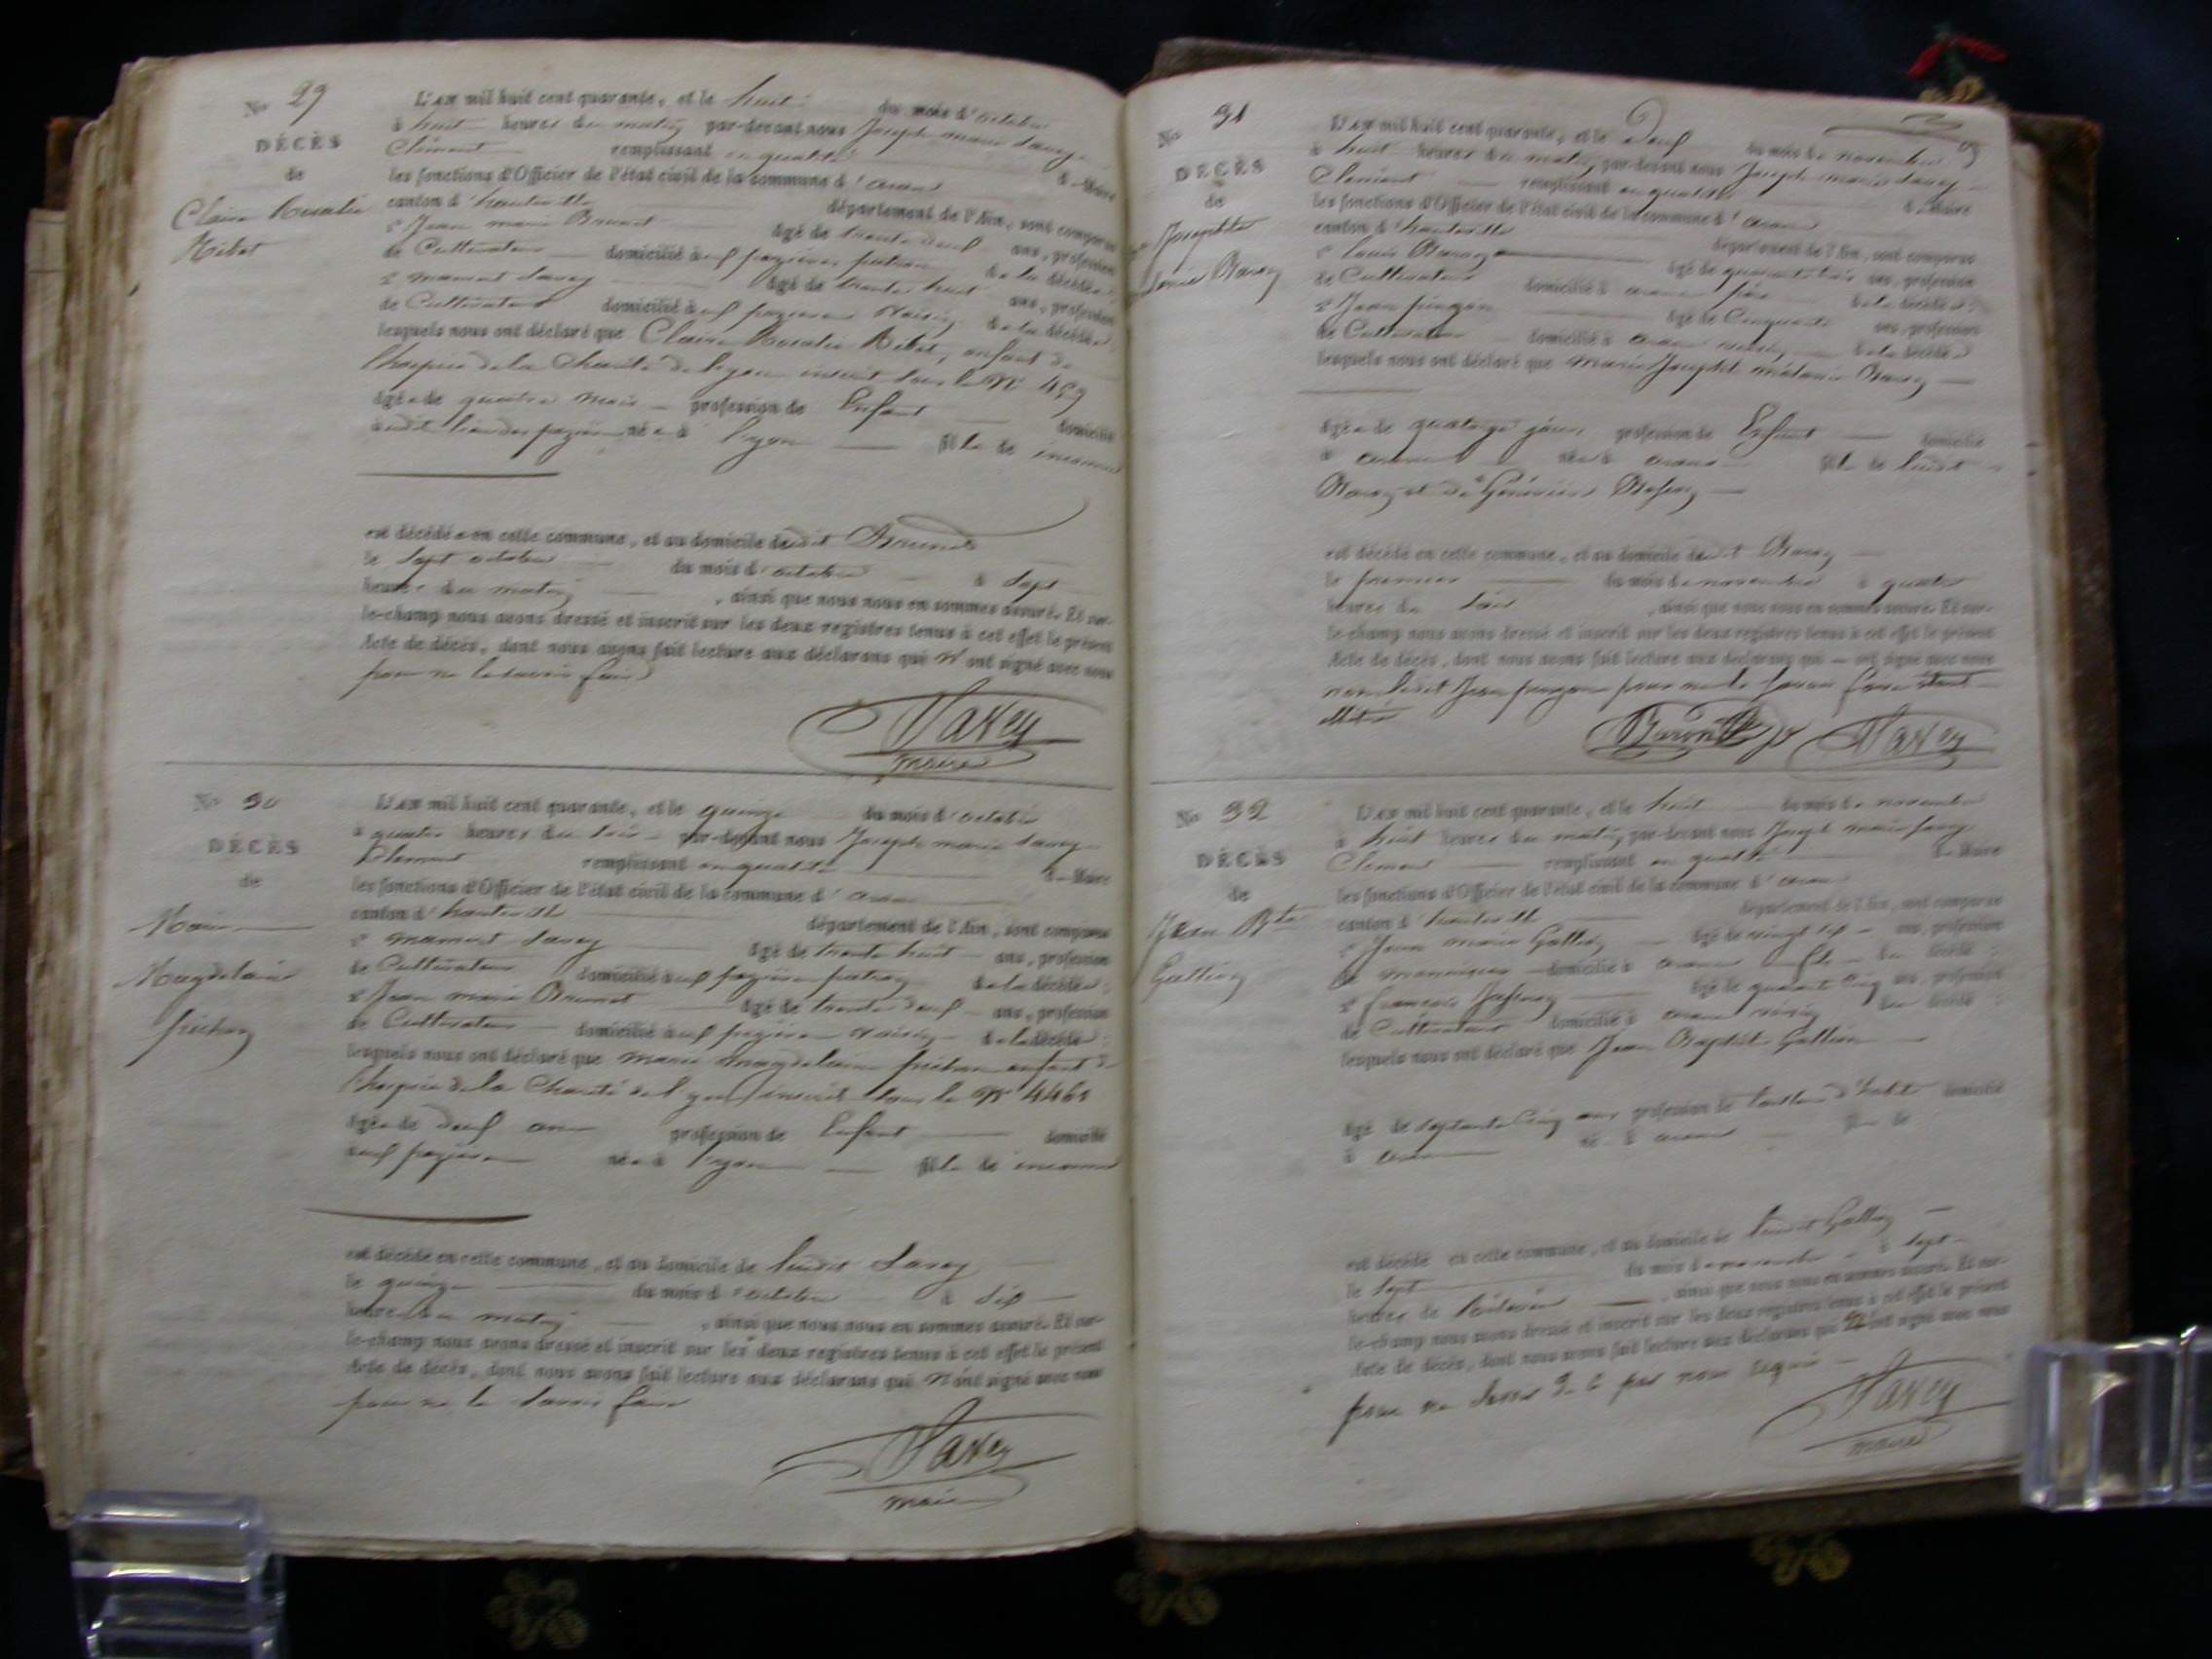 No 29
DÉCÈS
de
Claire Rosalie
Ribet
L'an mil huit cent quarante, et le huit du mois d'octobre
à huit heures du matin par-devant nous Joseph marie Savey
Clément remplissant en qualité de Maire
les fonctions d'Officier de l'état civil de la commune d'aranc
canton d'hauteville département de l'Ain, sont comparus
1° Jean marie Brunet âgé de trente deux ans, profession
de Cultivateur domicilié aux pezières patron de la décédée;
2° mamert Savey âgé de trente huit ans, profession
de Cultivateur domicilié aux pezières Voisin de la décédée;
lesquels nous ont déclaré que Claire Rosalie Ribet, enfant de
l'hospice de la Charité de lyon inscrit sous le N°
âgée de quatre mois profession de Enfant domicilié
née à lyon fille de inconnus
est décédée en cette commune, et au domicile dudit Brunet
le sept octobre du mois d'octobre à sept
heures du matin, ainsi que nous nous en sommes assuré. Et sur-
le-champ nous avons dressé et inscrit sur les deux registres tenus à cet effet le présent
Acte de décès, dont nous avons fait lecture aux déclarans qui n'ont signé avec nous
pour ne le savoir faire
Savey
maire
No 30
DÉCÈS
de
Marie
Magdelaine
L'an mil huit cent quarante, et le quinze du mois d'octobre
à quatre heures du soir par-devant nous Joseph marie Savey
Clément remplissant en qualité de Maire
les fonctions d'Officier de l'état civil de la commune d'aranc
canton d'hauteville département de l'Ain, sont comparus
1° mamert Savey âgé de trente huit ans, profession
de Cultivateur domicilié aux pezières patron de la décédée;
2° Jean marie Brunet âgé de trente deux ans, profession
de Cultivateur domicilié aux pezières voisin de la décédée;
lesquels nous ont déclaré que marie magdelaine enfant de
l'hospice de la Charité de lyon inscrit sous le N° 4461
âgée de deux ans profession de Enfant domicilié
aux pezières née à lyon fille de inconnus
est décédée en cette commune, et au domicile de Savey
le quinze du mois d'octobre à dix
heures du matin, ainsi que nous nous en sommes assuré. Et sur-
le-champ nous avons dressé et inscrit sur les deux registres tenus à cet effet le présent
Acte de décès, dont nous avons fait lecture aux déclarans qui n'ont signé avec nous
pour ne le savoir faire
Savey
maire
No 31
DÉCÈS
de
L'an mil huit cent quarante, et le Deux du mois de novembre
à huit heures du matin, par-devant nous Joseph marie Savey
Clément remplissant en qualité de Maire
les fonctions d'Officier de l'état civil de la commune d'aranc
canton d'hauteville département de l'Ain, sont comparus
1° louis âgé de quarante trois ans, profession
de Cultivateur domicilié à aranc père de la décédée;
2° Jean âgé de Cinquante ans, profession
de Cultivateur domicilié à aranc voisin de la décédée
lesquels nous ont déclaré que marie Josephte mélanie
âgée de quatorze jours profession de Enfant domicilié
à aranc née à aranc fille de
et de Geneviève
est décédé en cette commune, et au domicile dudit
le premier du mois de novembre à quatre
heures du soir, ainsi que nous nous en sommes assuré. Et sur-
le-champ nous avons dressé et inscrit sur les deux registres tenus à cet effet le présent
Acte de décès, dont nous avons fait lecture aux déclarans qui ont signé avec nous
non ledit Jean pour ne le savoir faire étant
illitéré
Savey
No 32
DÉCÈS
de
Jean Bte
L'an mil huit cent quarante, et le huit du mois de novembre
à huit heures du matin, par-devant nous Joseph marie Savey
Clément remplissant en qualité de Maire
les fonctions d'Officier de l'état civil de la commune d'aranc
canton d'hauteville département de l'Ain, sont comparus
1° Jean marie âgé de vingt six ans, profession
de domicilié à aranc fils du décédé;
2° françois âgé de quarante cinq ans, profession
de Cultivateur domicilié à aranc voisin du décédé;
lesquels nous ont déclaré que Jean Baptiste
âgé de septante cinq ans profession de tailleur d'habits domicilié
à aranc né à aranc
est décédé en cette commune, et au domicile de
le sept du mois de novembre à sept
heures de, ainsi que nous nous en sommes assuré. Et sur-
le-champ nous avons dressé et inscrit sur les deux registres tenus à cet effet le présent
Acte de décès, dont nous avons fait lecture aux déclarans qui n'ont signé avec nous
pour ne savoir de ce par nous requis
Savey
maire